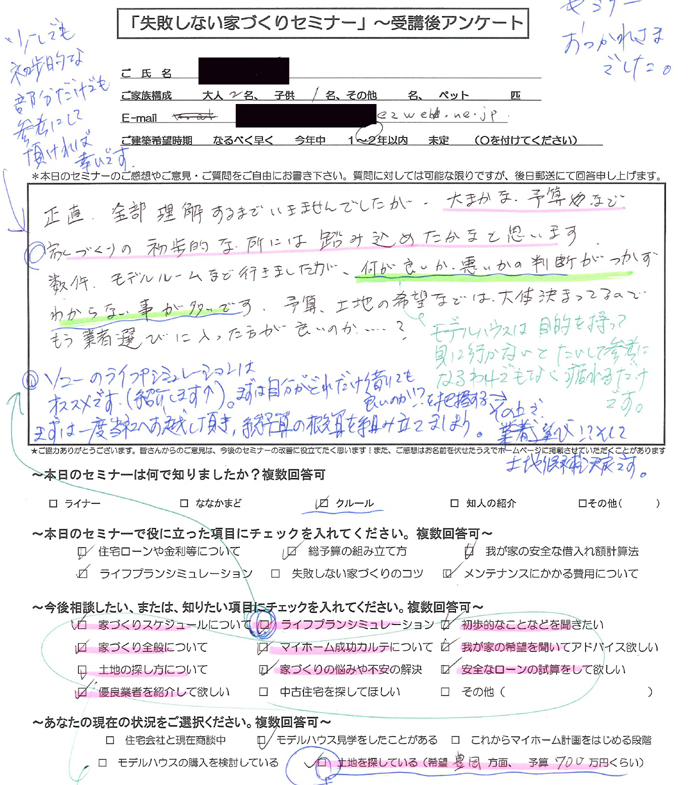 「失敗しない家づくりセミナー」～受講後アンケート
セミナー
おつかれさま
でした。
少しでも
初歩的な
部分だけでも
参考にして
頂ければ
幸いです。
ご 氏 名
ご家族構成 大人 2 名、 子供 1 名、その他 名、 ペット 匹
E-mail ezweb.ne.jp
ご建築希望時期 なるべく早く 今年中 1～2年以内 未定 (○を付けてください)
＊本日のセミナーのご感想やご意見・ご質問をご自由にお書き下さい。質問に対しては可能な限りですが、後日郵送にて回答申し上げます。
正直、全部理解するまでいきませんでしたが、大まかな予算やなど
家づくりの初歩的な所には踏み込めたかなと思います
数件、モデルルームまで行きましたが、何が良いか、悪いかの判断がつかず
わからない事が多いです。予算、土地の希望などは大体決まってるので
もう業者選びに入った方が良いのか‥‥？
モデルハウスは目的を持って
見に行かないとたいして参考に
なるわけでもなく疲れるだけ
です。
ソニーのライフプランシミュレーションは
オススメです。(紹介します)。まずは自分がどれだけ借りても
良いのか!?を把握する→
まずは一度当社へお越し頂き、総予算の概算を組み立てましょう。その上で、
業者選び!?そして
土地候補決定です。
＊ご協力ありがとうございます。皆さんからのご意見は、今後のセミナーの改善に役立てたく思います！また、ご感想はお名前を伏せたうえでホームページに掲載させていただくことがあります
～本日のセミナーは何で知りましたか？複数回答可
□ ライナー □ ななかまど ☑ クルール □ 知人の紹介 □その他( )
～本日のセミナーで役に立った項目にチェックを入れてください。複数回答可～
☑ 住宅ローンや金利等について ☑ 総予算の組み立て方 ☑ 我が家の安全な借入れ額計算法
☑ ライフプランシミュレーション □ 失敗しない家づくりのコツ ☑ メンテナンスにかかる費用について
～今後相談したい、または、知りたい項目にチェックを入れてください。複数回答可～
☑ 家づくりスケジュールについて ☑ ライフプランシミュレーション ☑ 初歩的なことなどを聞きたい
☑ 家づくり全般について ☑ マイホーム成功カルテについて ☑ 我が家の希望を聞いてアドバイス欲しい
☑ 土地の探し方について ☑ 家づくりの悩みや不安の解決 ☑ 安全なローンの試算をして欲しい
☑ 優良業者を紹介して欲しい □ 中古住宅を探してほしい □ その他( )
～あなたの現在の状況をご選択ください。複数回答可～
□ 住宅会社と現在商談中 ☑ モデルハウス見学をしたことがある □ これからマイホーム計画をはじめる段階
□ モデルハウスの購入を検討している ☑ 土地を探している (希望 豊岡 方面、 予算 700 万円くらい)